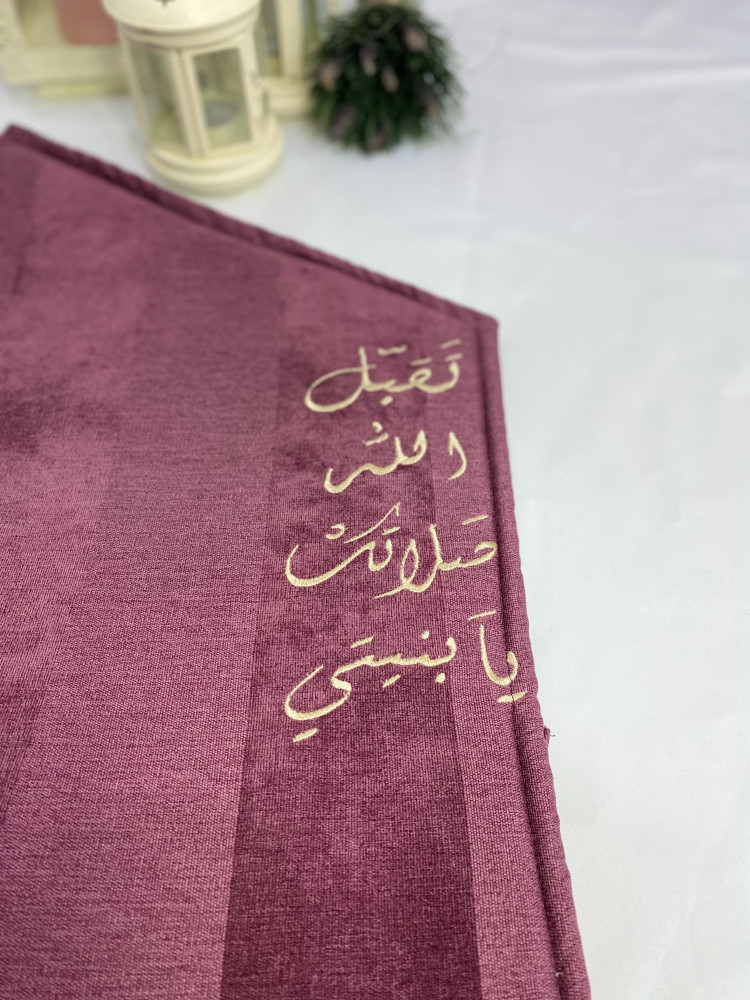 تَقَبّل
الله
صَلاتَكُ
يَا بنيتي